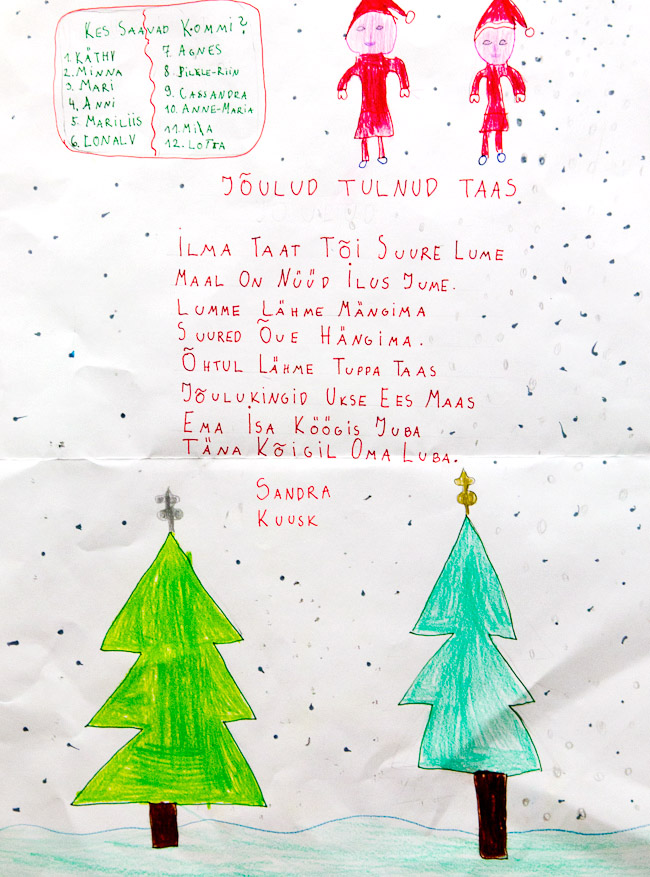 KES SAAVAD KOMMI?
1. KÄTHY
2. MINNA
3. MARI
4. ANNI
5. MARILIIS
6.
7. AGNES
8. PILLE-RIIN
9. CASSANDRA
10. ANNE-MARIA
11. MILA
12. LOTTA
JÕULUD TULNUD TAAS
ILMA TAAT TÕI SUURE LUME
MAAL ON NÜÜD ILUS JUME.
LUMME LÄHME MÄNGIMA
SUURED ÕUE HÄNGIMA.
ÕHTUL LÄHME TUPPA TAAS
JÕULUKINGID UKSE EES MAAS
EMA ISA KÖÖGIS JUBA
TÄNA KÕIGIL OMA LUBA.
SANDRA
KUUSK